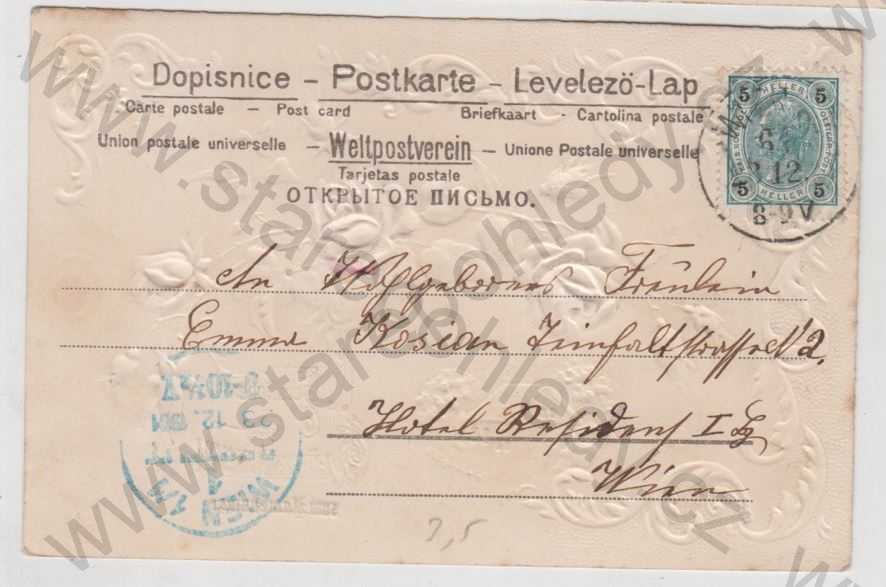 Dopisnice – Postkarte – Levelező-Lap
Carte postale — Post card Briefkaart – Cartolina postale
Union postale universelle – Weltpostverein – Unione Postale universelle
Tarjetas postale
ОТКРЫТОЕ ПИСЬМО.
5 HELLER 5
5 HELLER 5
6
12.
8-9V
An Wohlgeborenes Fräulein
Emma Kosian Zimfaltstrasse № 2.
Hotel Residens I Bz
Wien
12. 1901
WIEN 1/1
7,5
www.starepohledy.cz